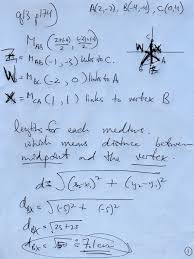 q13 p174 A(2,-2), B(-4,-4), C(0,4)
M_AB (2+-4/2, -2+-4/2)
Z = M_AB (-1,-3) links to C.
W = M_BC (-2,0) links to A
X = M_CA (1,1) links to vertex B
lengths for each median
which means distance between
midpoint and the vertex.
d = √(x₂-x₁)² + (y₂-y₁)²
d_BX = √(-5)² + (-5)²
d_BX = √25+25
d_BX = √50 = 7.1cm
1